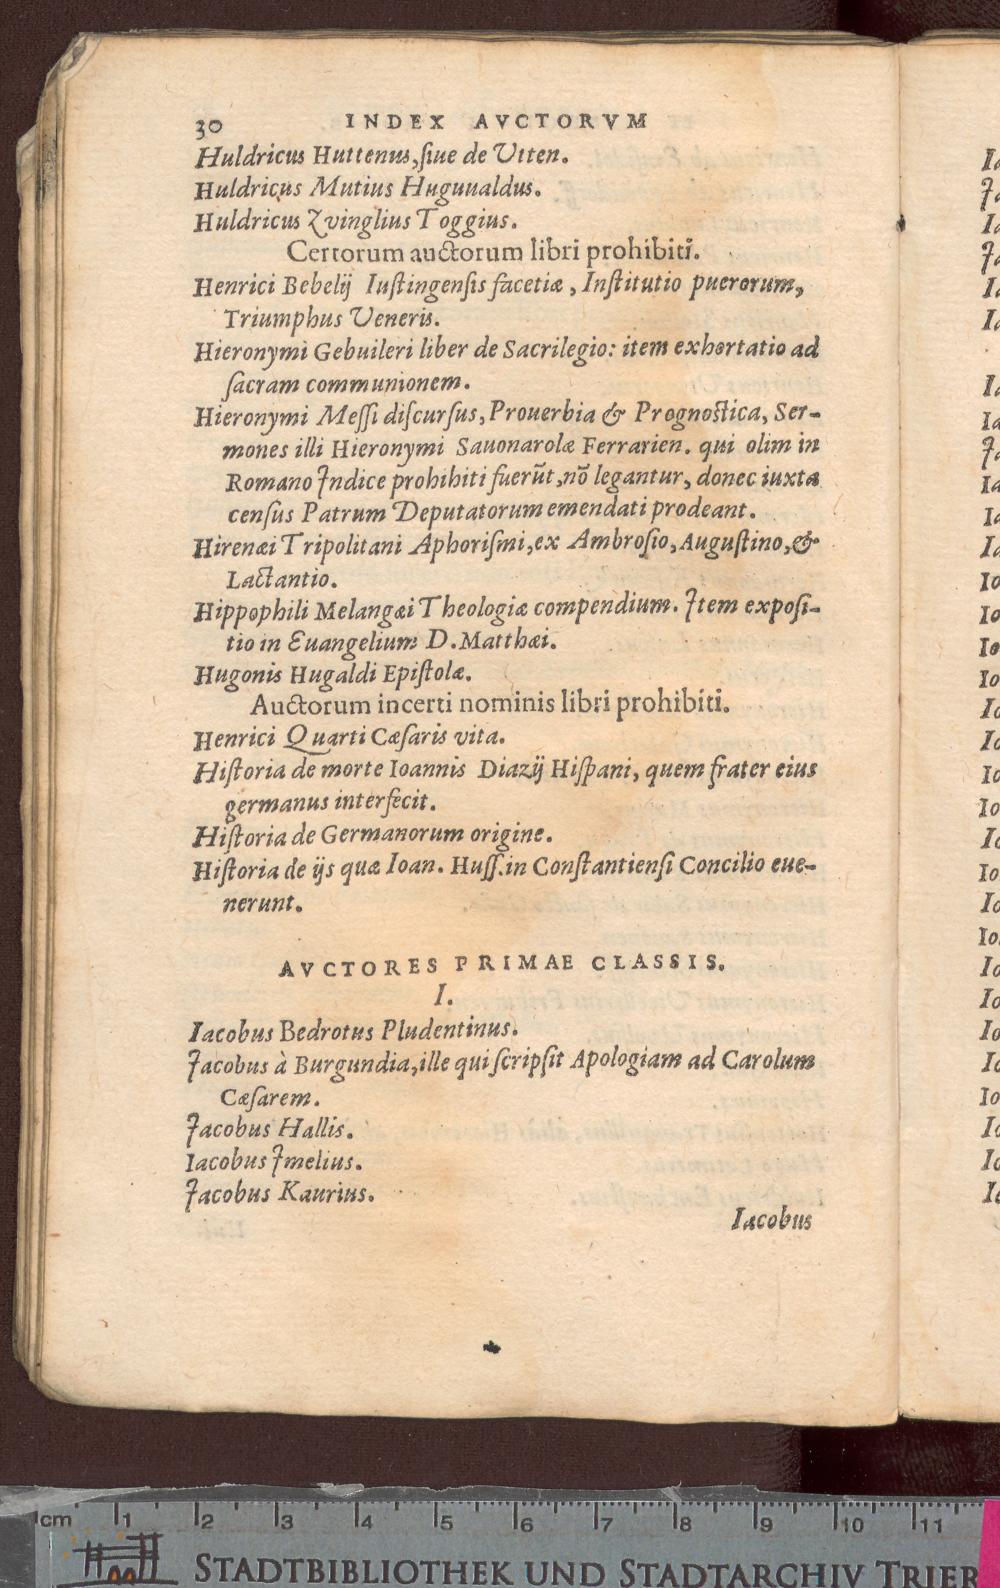 30 INDEX AVCTORVM
Huldricus Huttenus, siue de Vtten.
Huldricus Mutius Huguualdus.
Huldricus Zvinglius Toggius.
Certorum auctorum libri prohibiti.
Henrici Bebelij Iustingensis facetiæ, Institutio puerorum,
Triumphus Veneris.
Hieronymi Gebuileri liber de Sacrilegio: item exhortatio ad
sacram communionem.
Hieronymi Messi discursus, Prouerbia & Prognostica, Ser-
mones illi Hieronymi Sauonarolæ Ferrarien. qui olim in
Romano Indice prohibiti fuerũt, nõ legantur, donec iuxta
census Patrum Deputatorum emendati prodeant.
Hirenæi Tripolitani Aphorismi, ex Ambrosio, Augustino, &
Lactantio.
Hippophili Melangæi Theologiæ compendium. Item exposi-
tio in Euangelium D. Matthæi.
Hugonis Hugaldi Epistolæ.
Auctorum incerti nominis libri prohibiti.
Henrici Quarti Cæsaris vita.
Historia de morte Ioannis Diazij Hispani, quem frater eius
germanus interfecit.
Historia de Germanorum origine.
Historia de ijs quæ Ioan. Huss. in Constantiensi Concilio eue-
nerunt.
AVCTORES PRIMAE CLASSIS.
I.
Iacobus Bedrotus Pludentinus.
Iacobus à Burgundia, ille qui scripsit Apologiam ad Carolum
Cæsarem.
Iacobus Hallis.
Iacobus Imelius.
Iacobus Kaurius.
Iacobus
cm 1 2 3 4 5 6 7 8 9 10 11
STADTBIBLIOTHEK UND STADTARCHIV TRIER